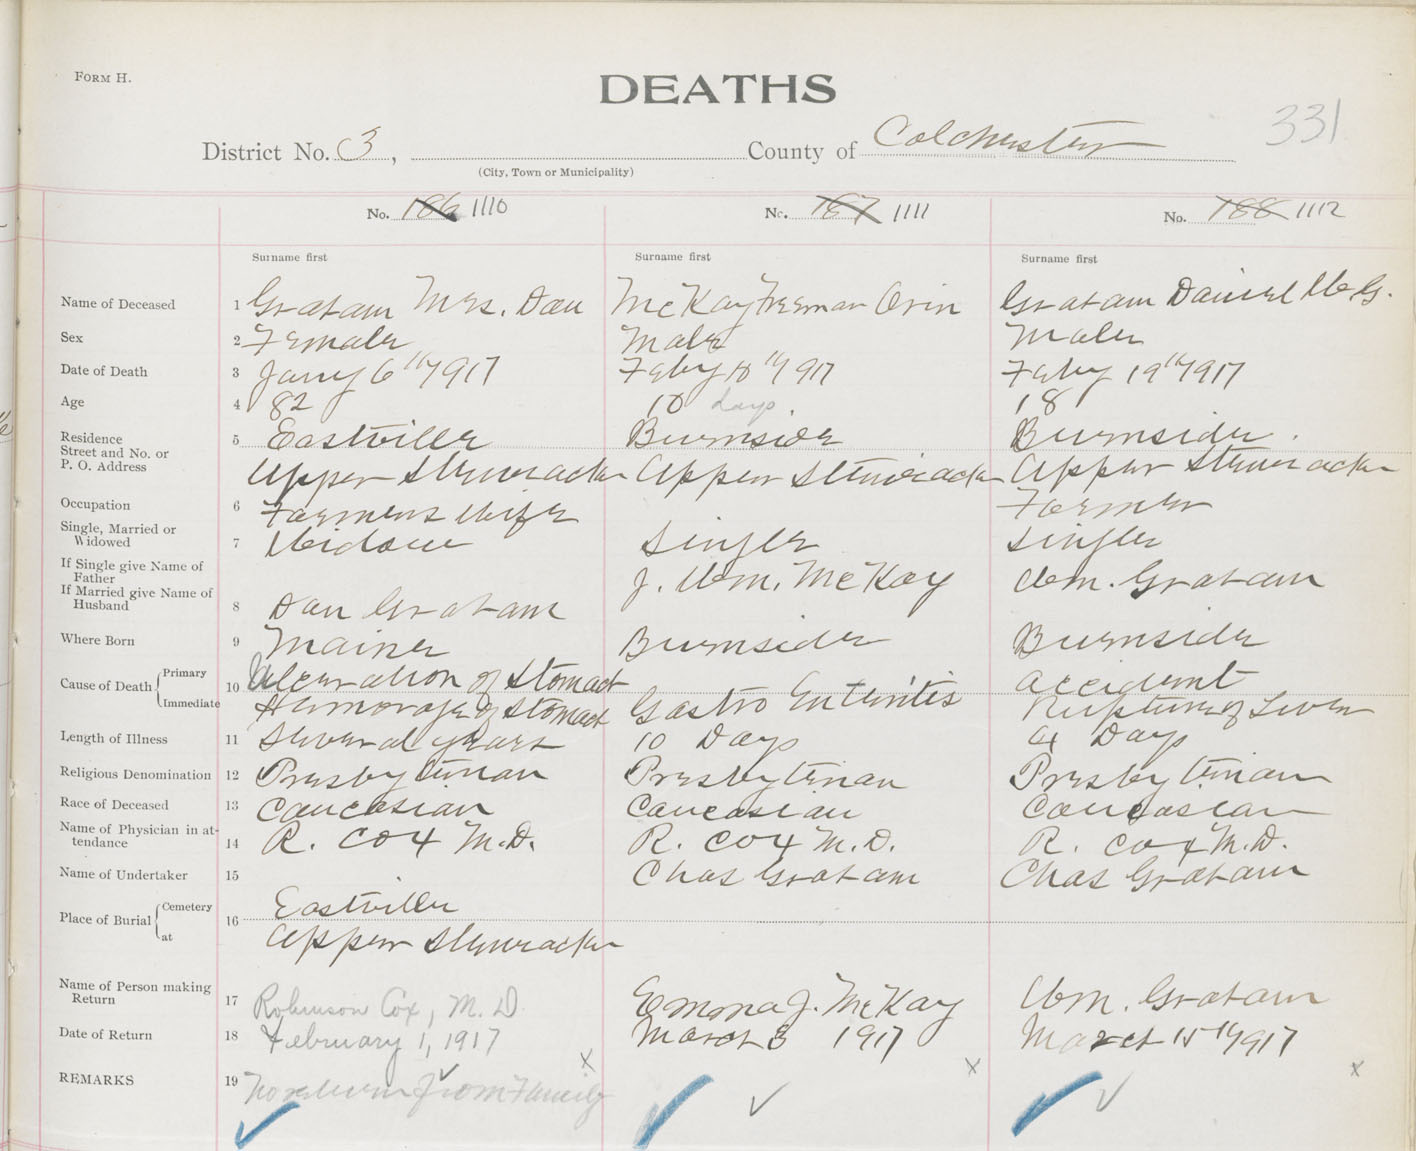 FORM H.
DEATHS
331
District No. 3, County of Colchester
(City, Town or Municipality)
No. 186 1110 No. 187 1111 No. 188 1112
Surname first Surname first Surname first
Name of Deceased 1 Graham Mrs. Dan McKay Freeman Orin Graham Daniel McG.
Sex 2 Female Male Male
Date of Death 3 Jany 6th 1917 Feby 10th 1917 Feby 19th 1917
Age 4 82 10 days. 18
Residence 5 Eastville Burnside Burnside.
Street and No. or
P. O. Address Upper Stewiacke Upper Stewiacke Upper Stewiacke
Occupation 6 Farmers Wife Farmer
Single, Married or
Widowed 7 Widow Single Single
If Single give Name of
Father J. Wm. McKay Wm. Graham
If Married give Name of
Husband 8 Dan Graham
Where Born 9 Maine Burnside Burnside
Cause of Death Primary 10 Ulceration of Stomach Accident
Immediate Hemorage of Stomach Gastro Enteritis Rupture of Liver
Length of Illness 11 Several years 10 Days 4 Days
Religious Denomination 12 Presbyterian Presbyterian Presbyterian
Race of Deceased 13 Caucasian Caucasian Caucasian
Name of Physician in at-
tendance 14 R. Cox M.D. R. Cox M.D. R. Cox M.D.
Name of Undertaker 15 Chas Graham Chas Graham
Place of Burial Cemetery 16 Eastville
at Upper Stewiacke
Name of Person making
Return 17 Robinson Cox, M.D. Emma J. McKay Wm. Graham
Date of Return 18 February 1, 1917 March 3 1917 March 15th 1917
x x x
REMARKS 19 No return from Family